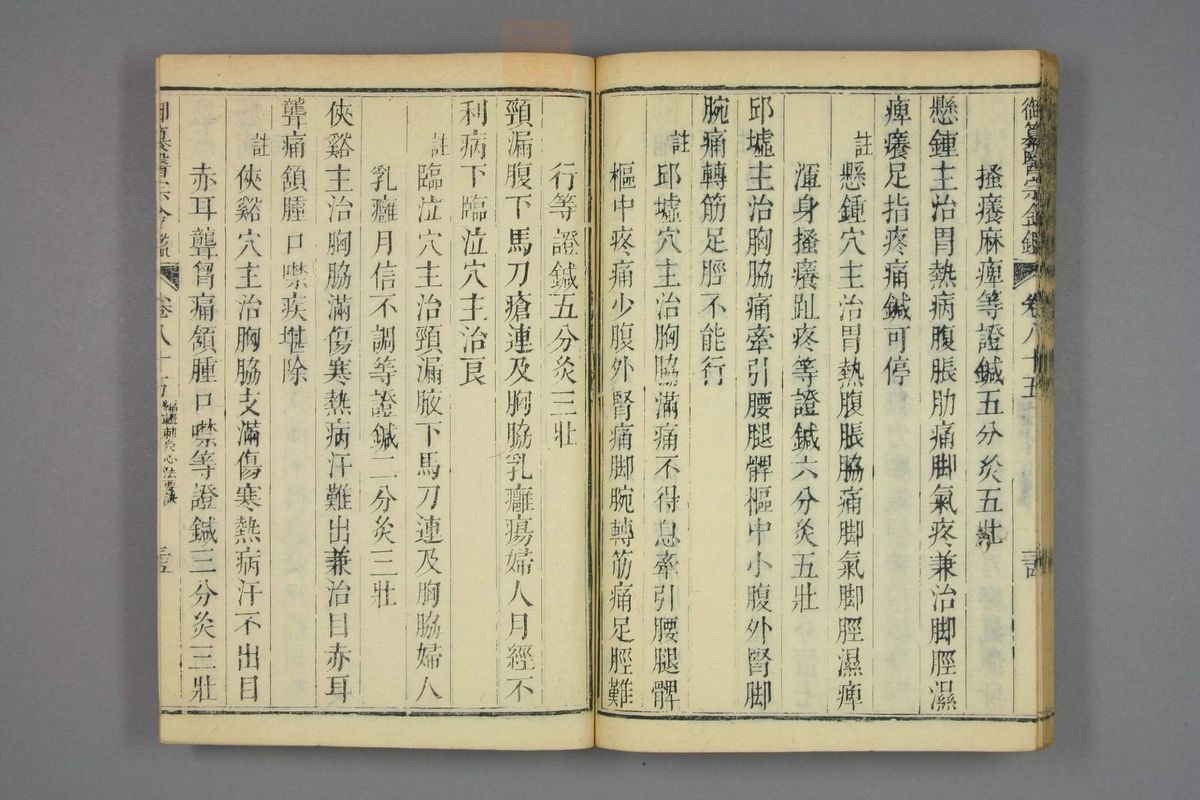 御纂醫宗金鑑 卷八十五
搔癢麻痺等證鍼五分灸五壯
懸鍾主治胃熱病腹脹肋痛脚氣疼兼治脚脛濕
痺癢足指疼痛鍼可停
註懸鍾穴主治胃熱腹脹脇痛脚氣脚脛濕痺
渾身搔癢趾疼等證鍼六分灸五壯
邱墟主治胸脇痛牽引腰腿髀樞中小腹外腎脚
腕痛轉筋足脛不能行
註邱墟穴主治胸脇滿痛不得息牽引腰腿髀
樞中疼痛少腹外腎痛脚腕轉筋痛足脛難
行等證鍼五分灸三壯
頸漏腹下馬刀瘡連及胸脇乳癰瘍婦人月經不
利病下臨泣穴主治良
註臨泣穴主治頸漏腋下馬刀連及胸脇婦人
乳癰月信不調等證鍼二分灸三壯
俠谿主治胸脇滿傷寒熱病汗難出兼治目赤耳
聾痛頷腫口噤疾堪除
註俠谿穴主治胸脇支滿傷寒熱病汗不出目
赤耳聾胷痛頷腫口噤等證鍼三分灸三壯
御纂醫宗金鑑 卷八十五 編輯刺灸心法要訣